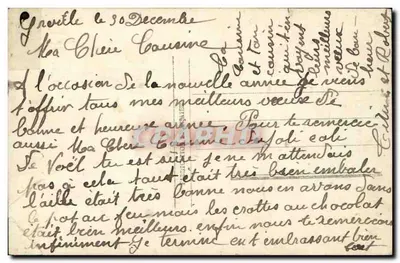 Gréville le 30 Décembre
Ma Chère Cousine
A l'occasion de la nouvelle année je viens
t'offrir tous mes meilleurs voeux de
bonne et heureuse année. Pour te remercie
aussi Ma Chère Cousine de joli coli
de Noël tu est sure je ne m attendais
pas à cela tout était très bien embaler
l'aille était très bonne nous en avons dans
le pot au feu mais les crottes au chocolat
était bien meilleurs. enfin nous te remercions
infiniment Je termine en t embrassant bien
fort
Ta
cousine
et ton
cousin
qui t'en
voient
leurs
meilleurs
voeux
de bon
heur
et Robert